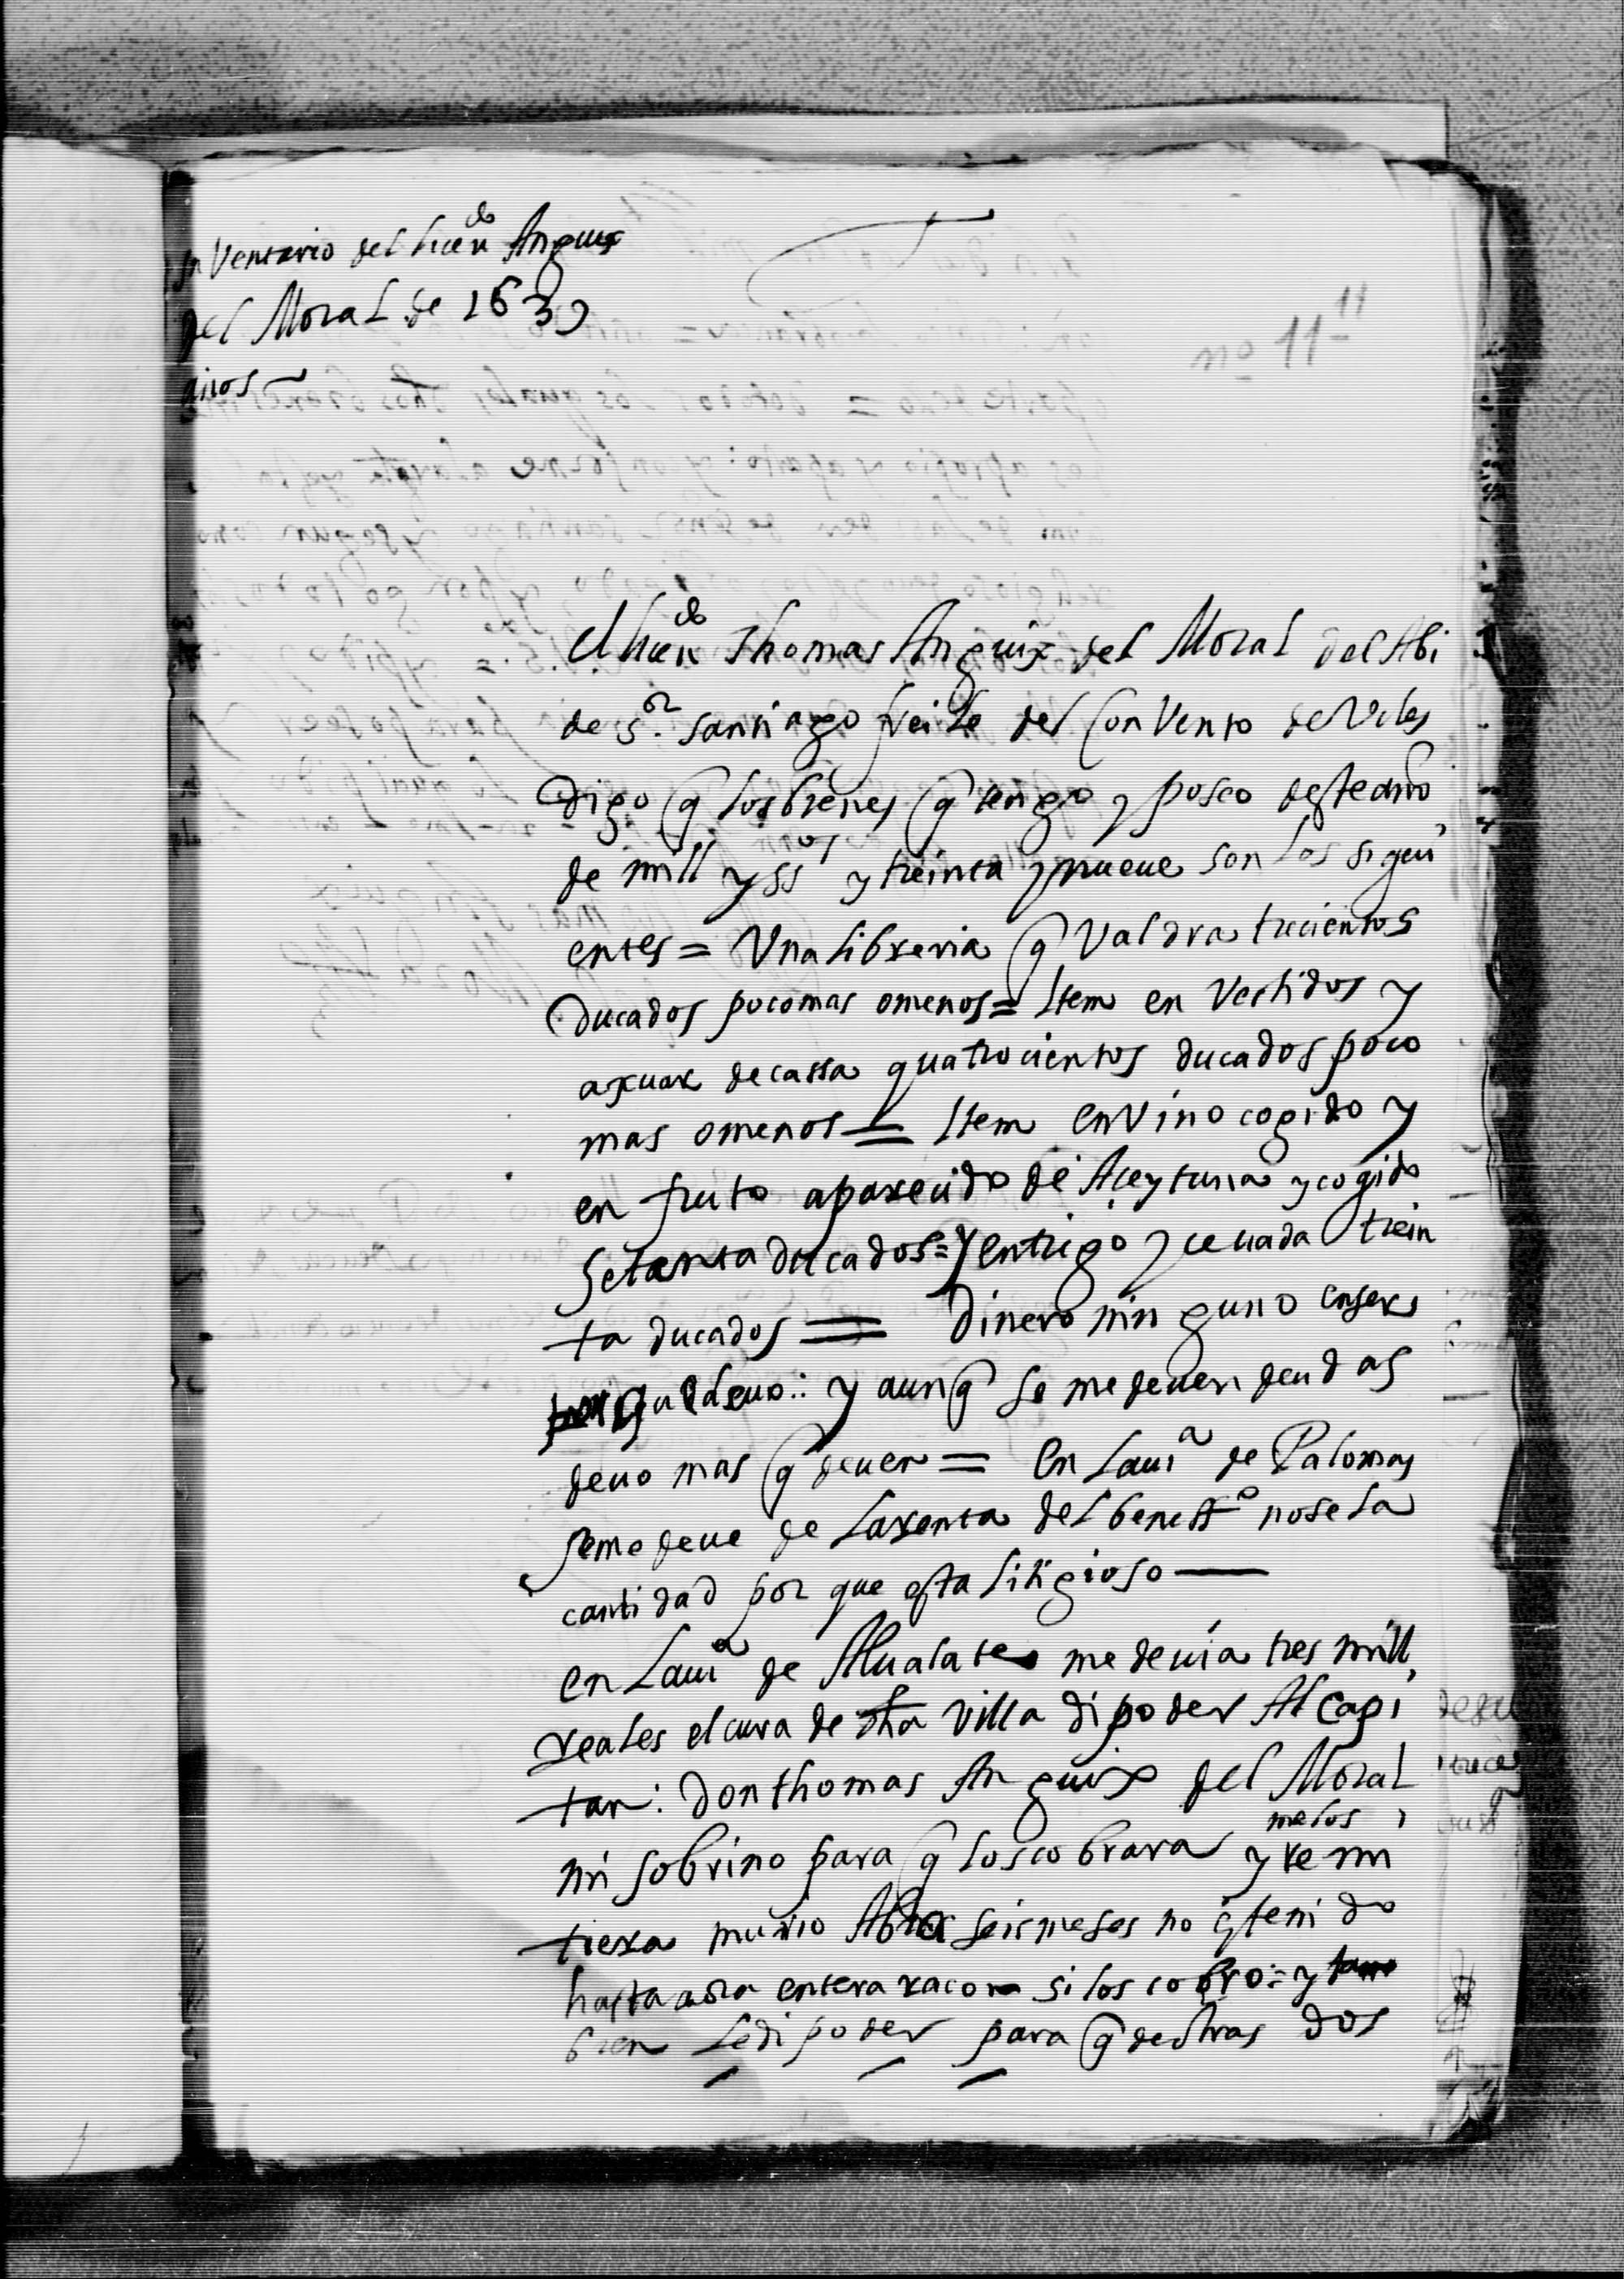 ynVentario del licen.do Anguix
del Moral de 1639
años
nº 11 11
El licen.do Thomas Anguix del Moral del Abi
de s.or santiago freile del Convento de Vcles
Digo q̃ los bienes q̃ tengo y poseo este año
de mill y ssos y treinta y nueue son los sigui
entes = Vna libreria q̃ Valdra trecientos
Ducados poco mas o menos = Item en Vestidos y
axuar de cassa quatrocientos ducados poco
mas o menos = Item en vino cogido y
en fruto aparecido de Aceytuna y cogido
Setenta ducados = Y en trigo y ceuada trein
ta ducados = Dinero ninguno
y aunq̃ se me deuen deudas
deuo mas q̃ deuen = En la uia de Palomas
Se me deue de la renta del beneffo no se la
cantidad por que esta litigioso
en la uia de Almalate me deuia tres mill
reales el cura de dha villa di poder Al capi
tan: Don thomas Anguix del Moral
mi sobrino para q̃ los cobrara y me los remi
tiera murio Abra seis meses no e tenido
hasta aora entera raçon si los cobro = y tam
bien le di poder para q̃ de otras dos